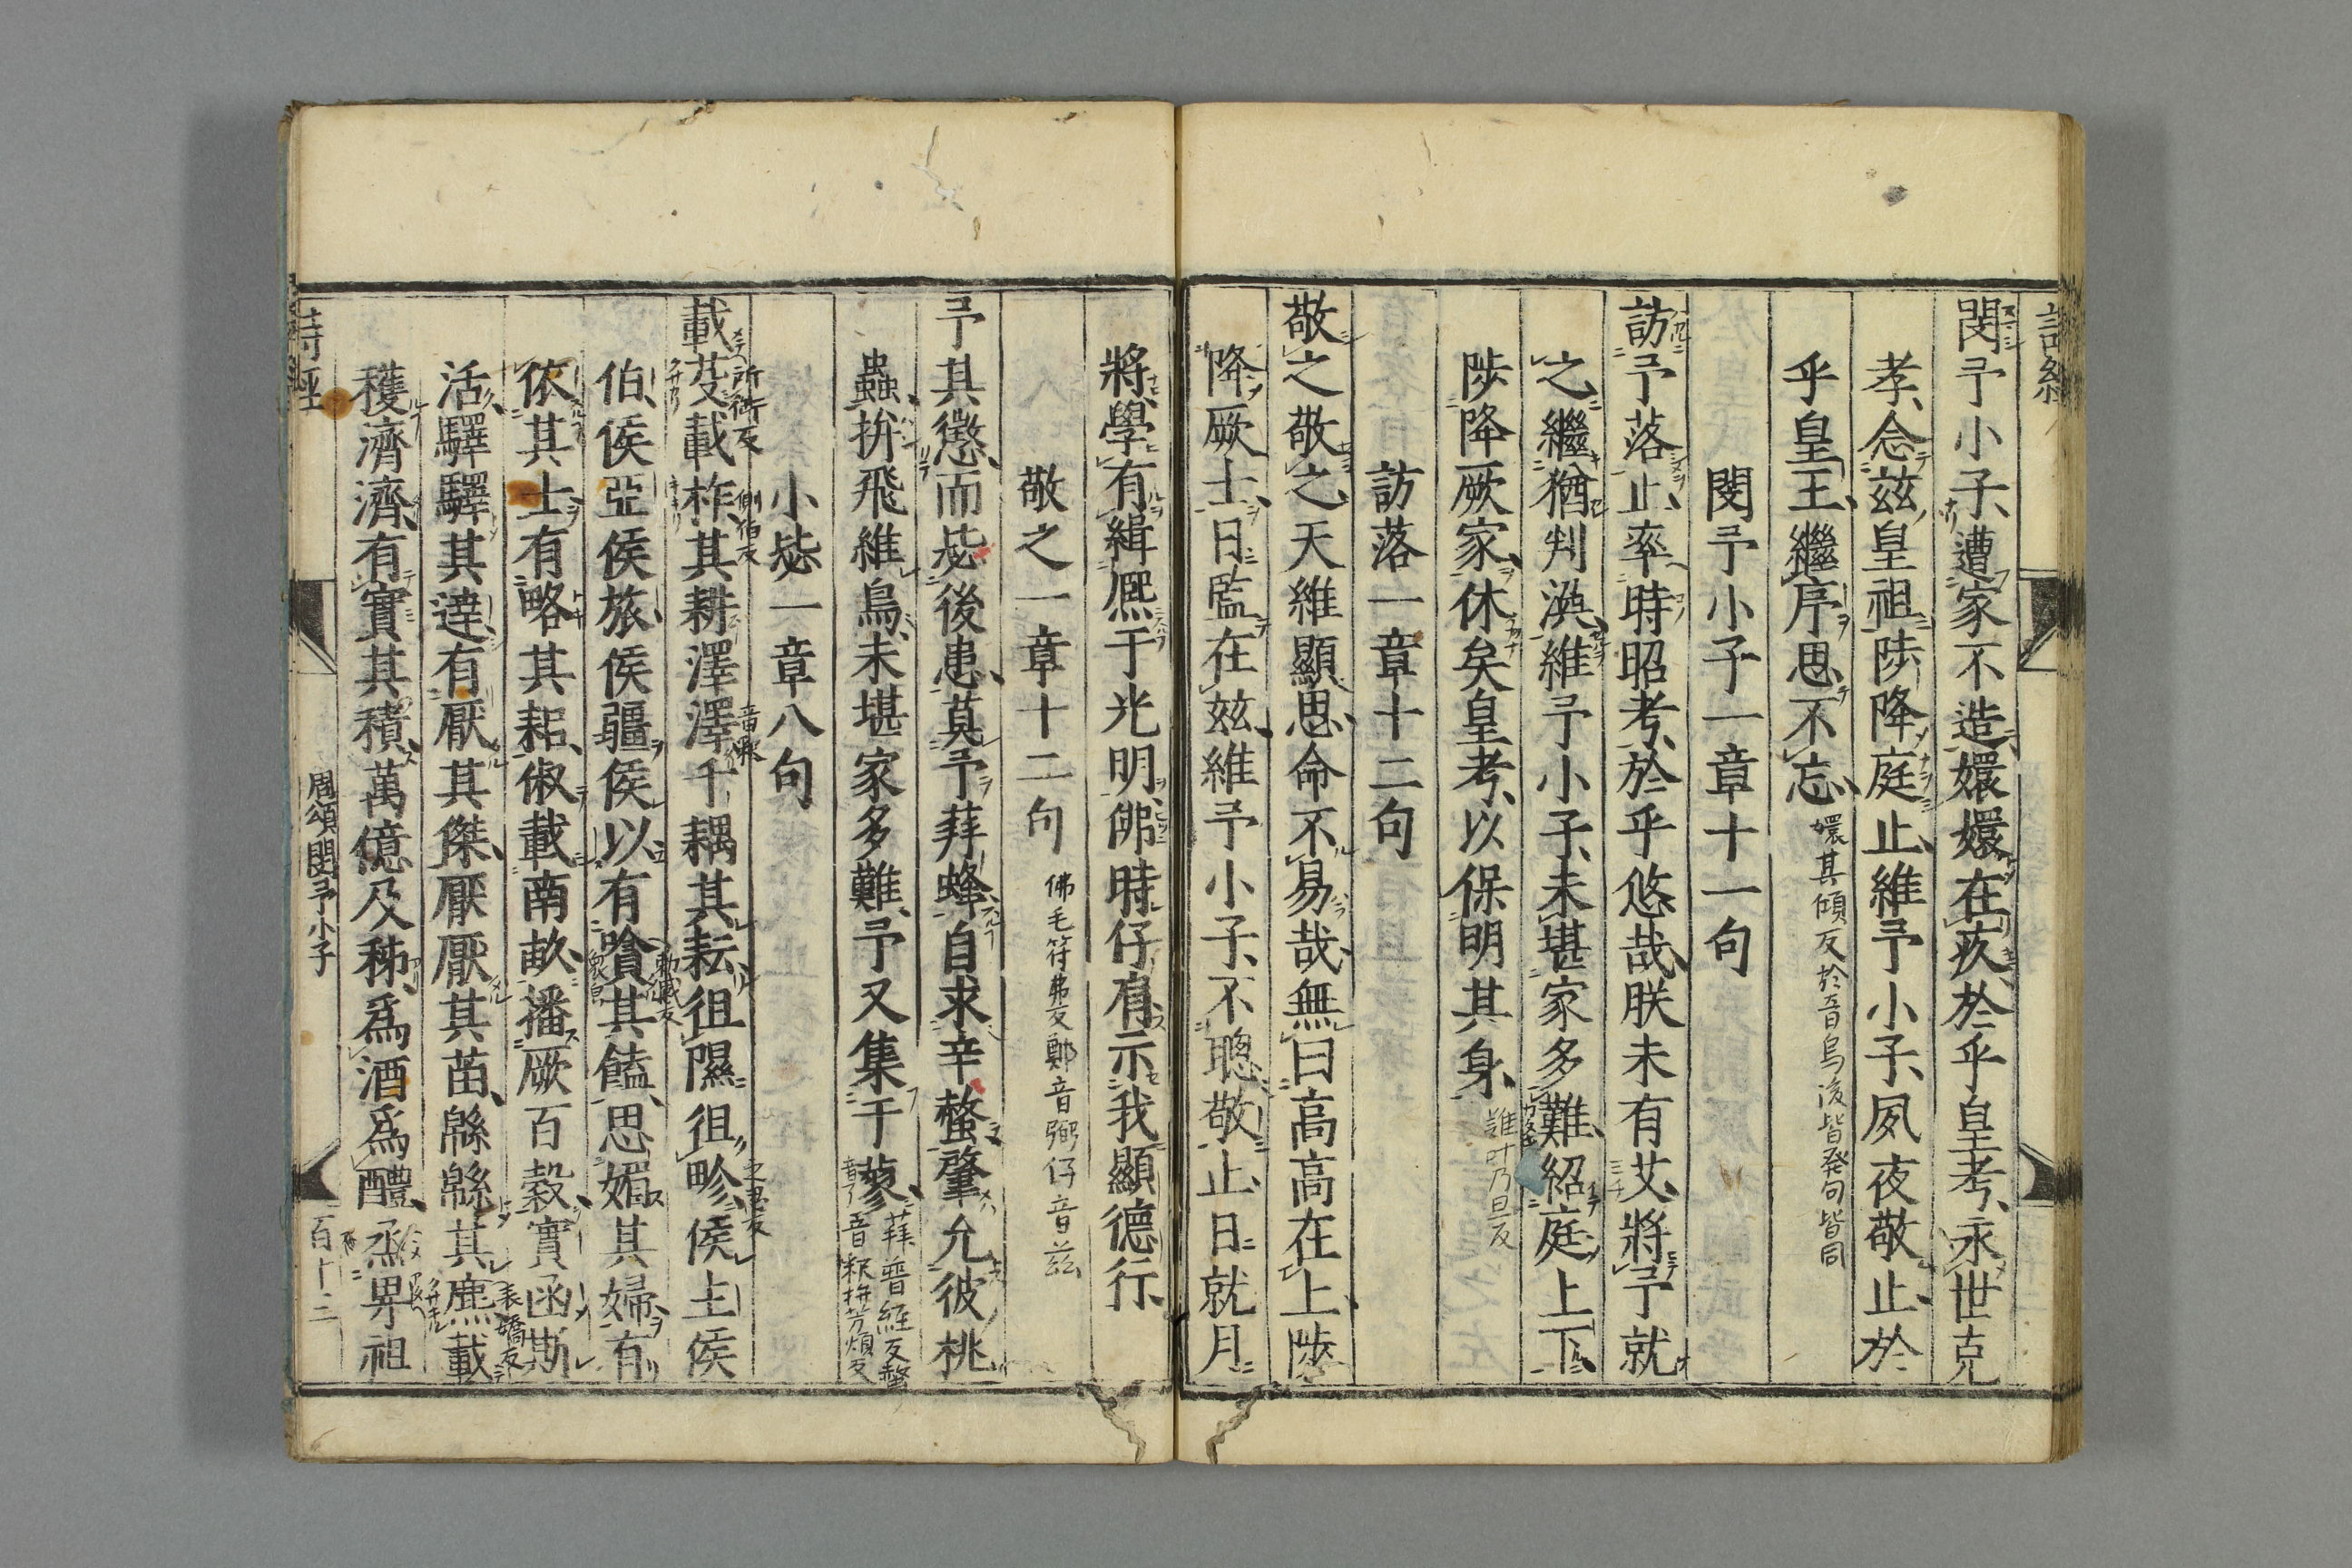 詩經
閔予小子、遭家不造、嬛嬛在疚、於乎皇考、永世克
孝、念兹皇祖、陟降庭止、維予小子、夙夜敬止、於
乎皇王、繼序思不忘、
嬛其傾反於音烏後皆発句皆同
閔予小子一章十一句
訪予落止、率時昭考、於乎悠哉、朕未有艾、將予就
之、繼猶判渙、維予小子、未堪家多難、紹庭上下、
陟降厥家、休矣皇考、以保明其身、
難叶乃旦反
訪落一章十二句
敬之敬之、天維顯思、命不易哉、無曰高高在上、陟
降厥士、日監在兹、維予小子、不聰敬止、日就月
將、學有緝熈于光明、佛時仔肩、示我顯德行、
敬之一章十二句
佛毛符弗反鄭音弼仔音兹
予其懲、而毖後患、莫予荓蜂、自求辛螫、肇允彼桃
蟲、拚飛維鳥、未堪家多難、予又集于蓼、
音了
荓普經反螫
音釈拚芳煩反
小毖一章八句
載芟載柞、其耕澤澤、千耦其耘、徂隰徂畛、侯主侯
所銜反
側伯反
音釋
伯、侯亞侯旅、侯彊侯以、有嗿其饁、思媚其婦、有
勅感反
依其士、有略其耜、俶載南畝、播厥百穀、實函斯
活、驛驛其達、有厭其傑、厭厭其苗、緜緜其麃、載
表嬌反
穫濟濟、有實其積、萬億及秭、爲酒爲醴、烝畀祖
詩經
周頌閔予小子
百十三